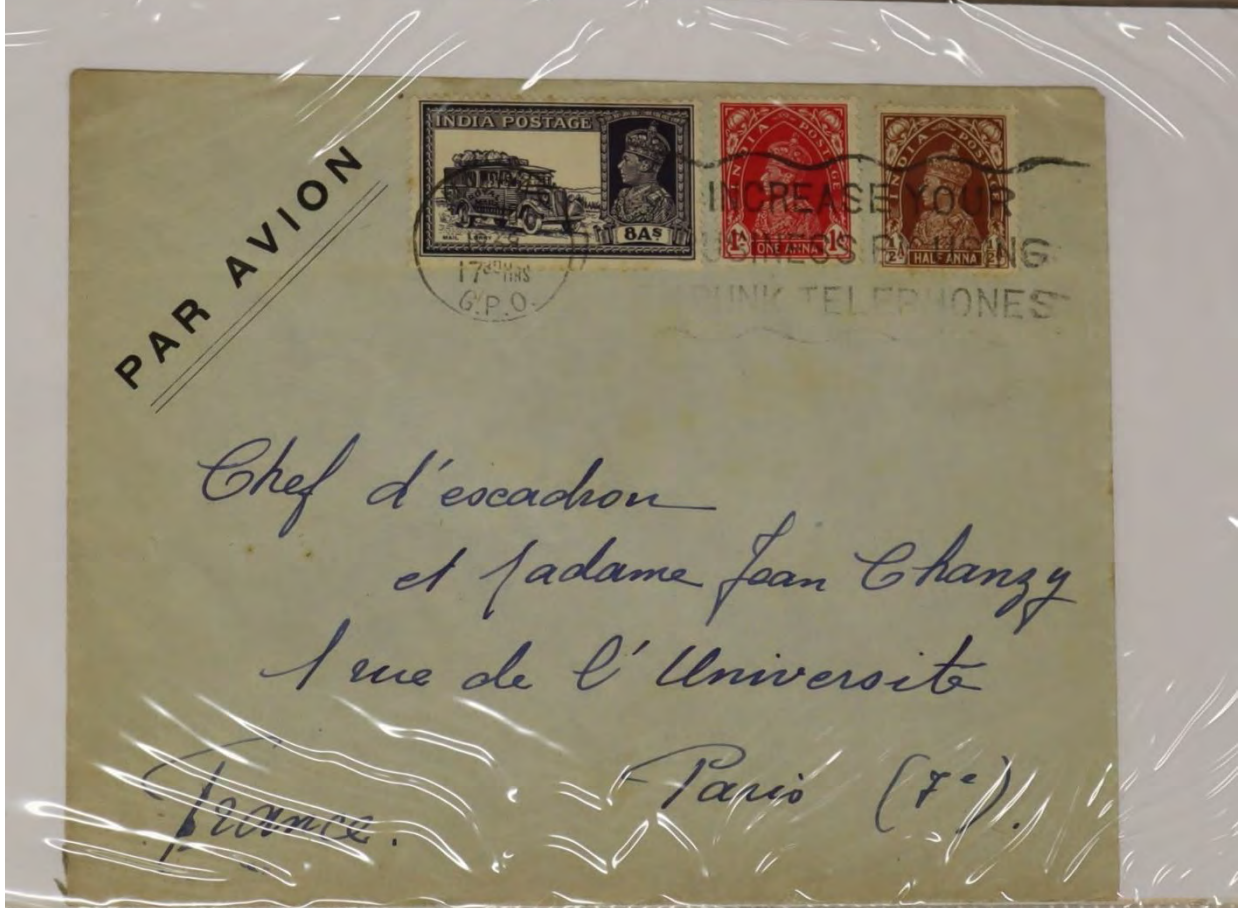 PAR AVION
INDIA POSTAGE
MAIL
8As
INDIA POSTAGE
1A ONE ANNA 1A
INDIA POSTAGE
½A HALF ANNA ½A
17 30 HRS
G.P.O.
INCREASE YOUR
BUSINESS BY USING
TRUNK TELEPHONES
Chef d'escadron
et Madame Jean Chanzy
1 rue de l'Université
Paris (7e).
France.